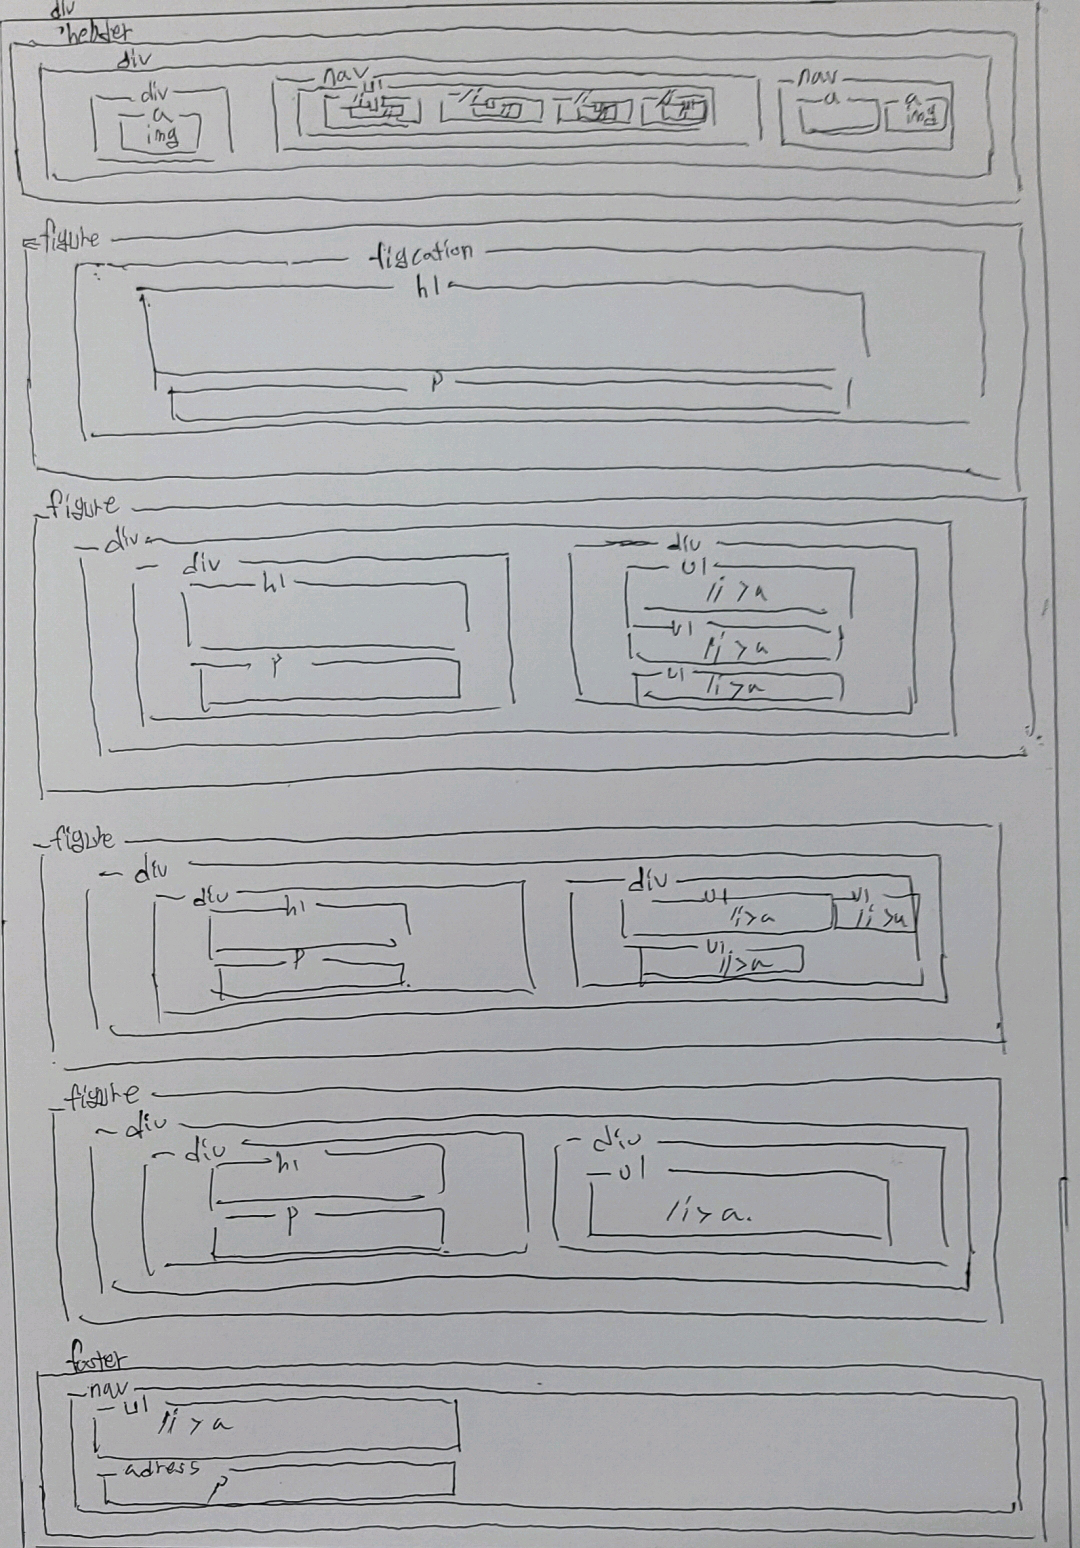 div
header
div
div
nav
nav
a
img
ul
li
li
li
li
a
a
img
figure
figcation
h1
p
figure
div
div
h1
p
div
ul
li > a
ul
li > a
ul
li > a
figure
div
div
h1
p
div
ul
li > a
ul
li > a
ul
li > a
figure
div
div
h1
p
div
ul
li > a.
footer
nav
ul
li > a
adress
p